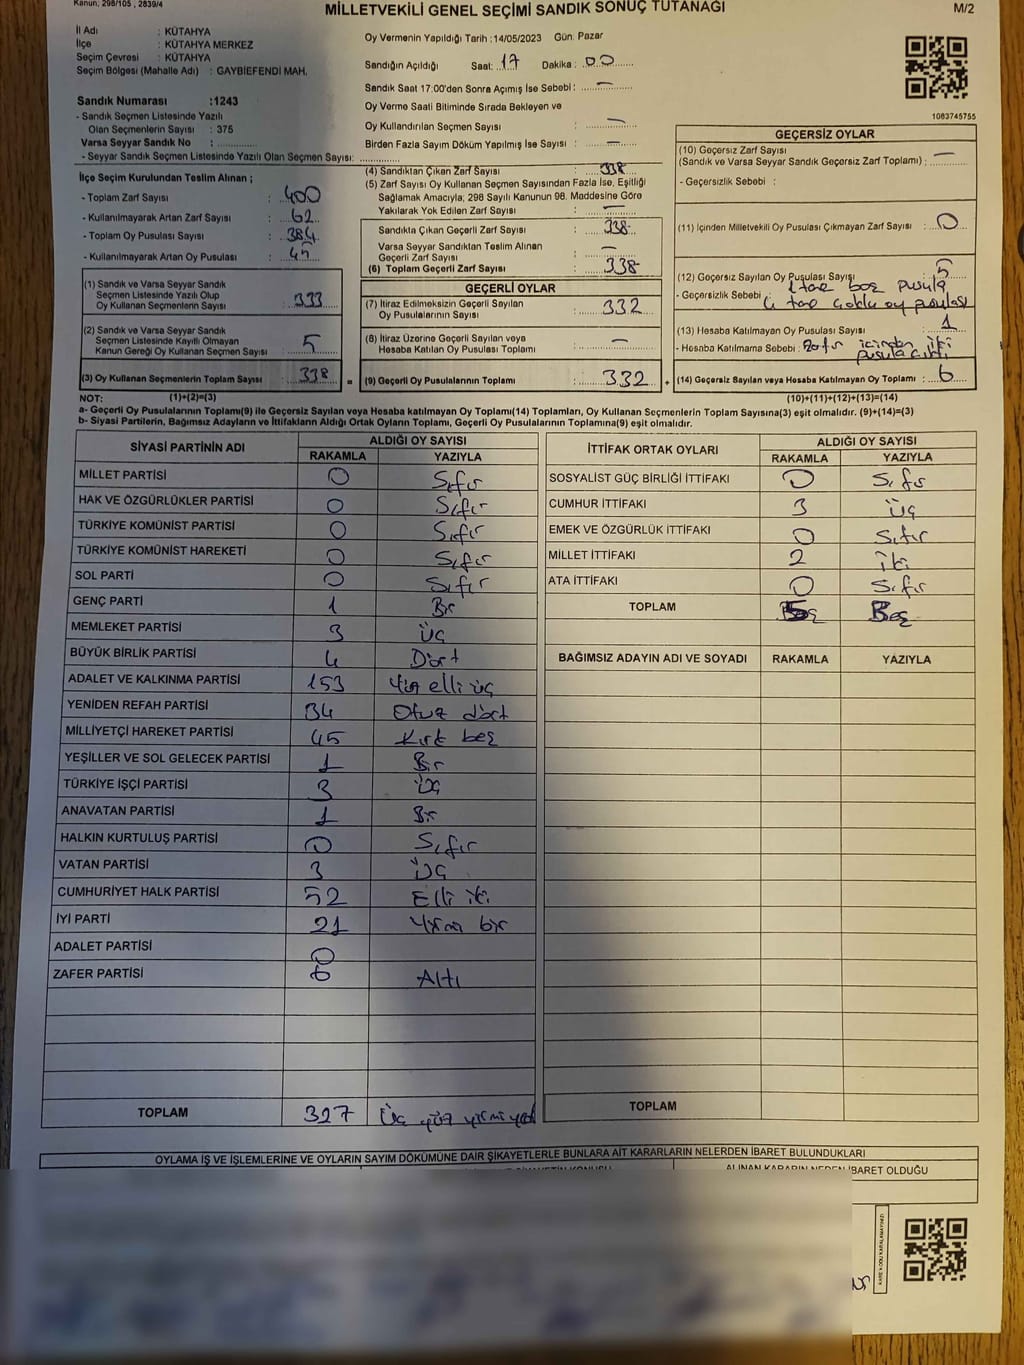 Kanun; 298/105 , 2839/4
MİLLETVEKİLİ GENEL SEÇİMİ SANDIK SONUÇ TUTANAĞI
M/2
İl Adı : KÜTAHYA
İlçe : KÜTAHYA MERKEZ
Seçim Çevresi : KÜTAHYA
Seçim Bölgesi (Mahalle Adı) : GAYBİEFENDİ MAH.
Sandık Numarası :1243
- Sandık Seçmen Listesinde Yazılı
Olan Seçmenlerin Sayısı : 375
Varsa Seyyar Sandık No :
- Seyyar Sandık Seçmen Listesinde Yazılı Olan Seçmen Sayısı:
Oy Vermenin Yapıldığı Tarih :14/05/2023 Gün: Pazar
Sandığın Açıldığı Saat: 17 Dakika : 00
Sandık Saat 17:00'den Sonra Açımış İse Sebebi : —
Oy Verme Saati Bitiminde Sırada Bekleyen ve
Oy Kullandırılan Seçmen Sayısı : —
Birden Fazla Sayım Döküm Yapılmış İse Sayısı : —
1083745755
İlçe Seçim Kurulundan Teslim Alınan ;
- Toplam Zarf Sayısı : 400
- Kullanılmayarak Artan Zarf Sayısı : 62
- Toplam Oy Pusulası Sayısı : 384
- Kullanılmayarak Artan Oy Pusulası : 45
(1) Sandık ve Varsa Seyyar Sandık
Seçmen Listesinde Yazılı Olup
Oy Kullanan Seçmenlerin Sayısı : 333
(2) Sandık ve Varsa Seyyar Sandık
Seçmen Listesinde Kayıtlı Olmayan
Kanun Gereği Oy Kullanan Seçmen Sayısı : 5
(3) Oy Kullanan Seçmenlerin Toplam Sayısı : 338 =
(4) Sandıktan Çıkan Zarf Sayısı : 338
(5) Zarf Sayısı Oy Kullanan Seçmen Sayısından Fazla İse, Eşitliği
Sağlamak Amacıyla; 298 Sayılı Kanunun 98. Maddesine Göre
Yakılarak Yok Edilen Zarf Sayısı : —
Sandıkta Çıkan Geçerli Zarf Sayısı : 338
Varsa Seyyar Sandıktan Teslim Alınan
Geçerli Zarf Sayısı : —
(6) Toplam Geçerli Zarf Sayısı : 338
GEÇERLİ OYLAR
(7) İtiraz Edilmeksizin Geçerli Sayılan
Oy Pusulalarının Sayısı : 332
(8) İtiraz Üzerine Geçerli Sayılan veya
Hesaba Katılan Oy Pusulası Toplamı : —
(9) Geçerli Oy Pusulalarının Toplamı : 332 +
GEÇERSİZ OYLAR
(10) Geçersiz Zarf Sayısı
(Sandık ve Varsa Seyyar Sandık Geçersiz Zarf Toplamı) : —
- Geçersizlik Sebebi :
(11) İçinden Milletvekili Oy Pusulası Çıkmayan Zarf Sayısı : 0
(12) Geçersiz Sayılan Oy Pusulası Sayısı : 5
- Geçersizlik Sebebi : 1 tane boş pusula
4 tane çoklu oy pusulası
(13) Hesaba Katılmayan Oy Pusulası Sayısı : 1
- Hesaba Katılmama Sebebi : Zarfın içinden iki
pusula çıktı
(14) Geçersiz Sayılan veya Hesaba Katılmayan Oy Toplamı : 6
NOT: (1)+(2)=(3) (10)+(11)+(12)+(13)=(14)
a- Geçerli Oy Pusulalarının Toplamı(9) ile Geçersiz Sayılan veya Hesaba katılmayan Oy Toplamı(14) Toplamları, Oy Kullanan Seçmenlerin Toplam Sayısına(3) eşit olmalıdır. (9)+(14)=(3)
b- Siyasi Partilerin, Bağımsız Adayların ve İttifakların Aldığı Ortak Oyların Toplamı, Geçerli Oy Pusulalarının Toplamına(9) eşit olmalıdır.
SİYASİ PARTİNİN ADI ALDIĞI OY SAYISI
RAKAMLA YAZIYLA
MİLLET PARTİSİ 0 Sıfır
HAK VE ÖZGÜRLÜKLER PARTİSİ 0 Sıfır
TÜRKİYE KOMÜNİST PARTİSİ 0 Sıfır
TÜRKİYE KOMÜNİST HAREKETİ 0 Sıfır
SOL PARTİ 0 Sıfır
GENÇ PARTİ 1 Bir
MEMLEKET PARTİSİ 3 Üç
BÜYÜK BİRLİK PARTİSİ 4 Dört
ADALET VE KALKINMA PARTİSİ 153 Yüz elli üç
YENİDEN REFAH PARTİSİ 34 Otuz dört
MİLLİYETÇİ HAREKET PARTİSİ 45 Kırk beş
YEŞİLLER VE SOL GELECEK PARTİSİ 1 Bir
TÜRKİYE İŞÇİ PARTİSİ 3 Üç
ANAVATAN PARTİSİ 1 Bir
HALKIN KURTULUŞ PARTİSİ 0 Sıfır
VATAN PARTİSİ 3 Üç
CUMHURİYET HALK PARTİSİ 52 Elli iki
İYİ PARTİ 21 Yirmi bir
ADALET PARTİSİ 0
ZAFER PARTİSİ 6 Altı
TOPLAM 327 Üç yüz yirmi yedi
İTTİFAK ORTAK OYLARI ALDIĞI OY SAYISI
RAKAMLA YAZIYLA
SOSYALİST GÜÇ BİRLİĞİ İTTİFAKI 0 Sıfır
CUMHUR İTTİFAKI 3 Üç
EMEK VE ÖZGÜRLÜK İTTİFAKI 0 Sıfır
MİLLET İTTİFAKI 2 İki
ATA İTTİFAKI 0 Sıfır
TOPLAM 5 Beş
BAĞIMSIZ ADAYIN ADI VE SOYADI RAKAMLA YAZIYLA
TOPLAM
OYLAMA İŞ VE İŞLEMLERİNE VE OYLARIN SAYIM DÖKÜMÜNE DAİR ŞİKAYETLERLE BUNLARA AİT KARARLARIN NELERDEN İBARET BULUNDUKLARI
ALINAN KARARIN NEDEN İBARET OLDUĞU
KARE KODU KARALAMAYINIZ!